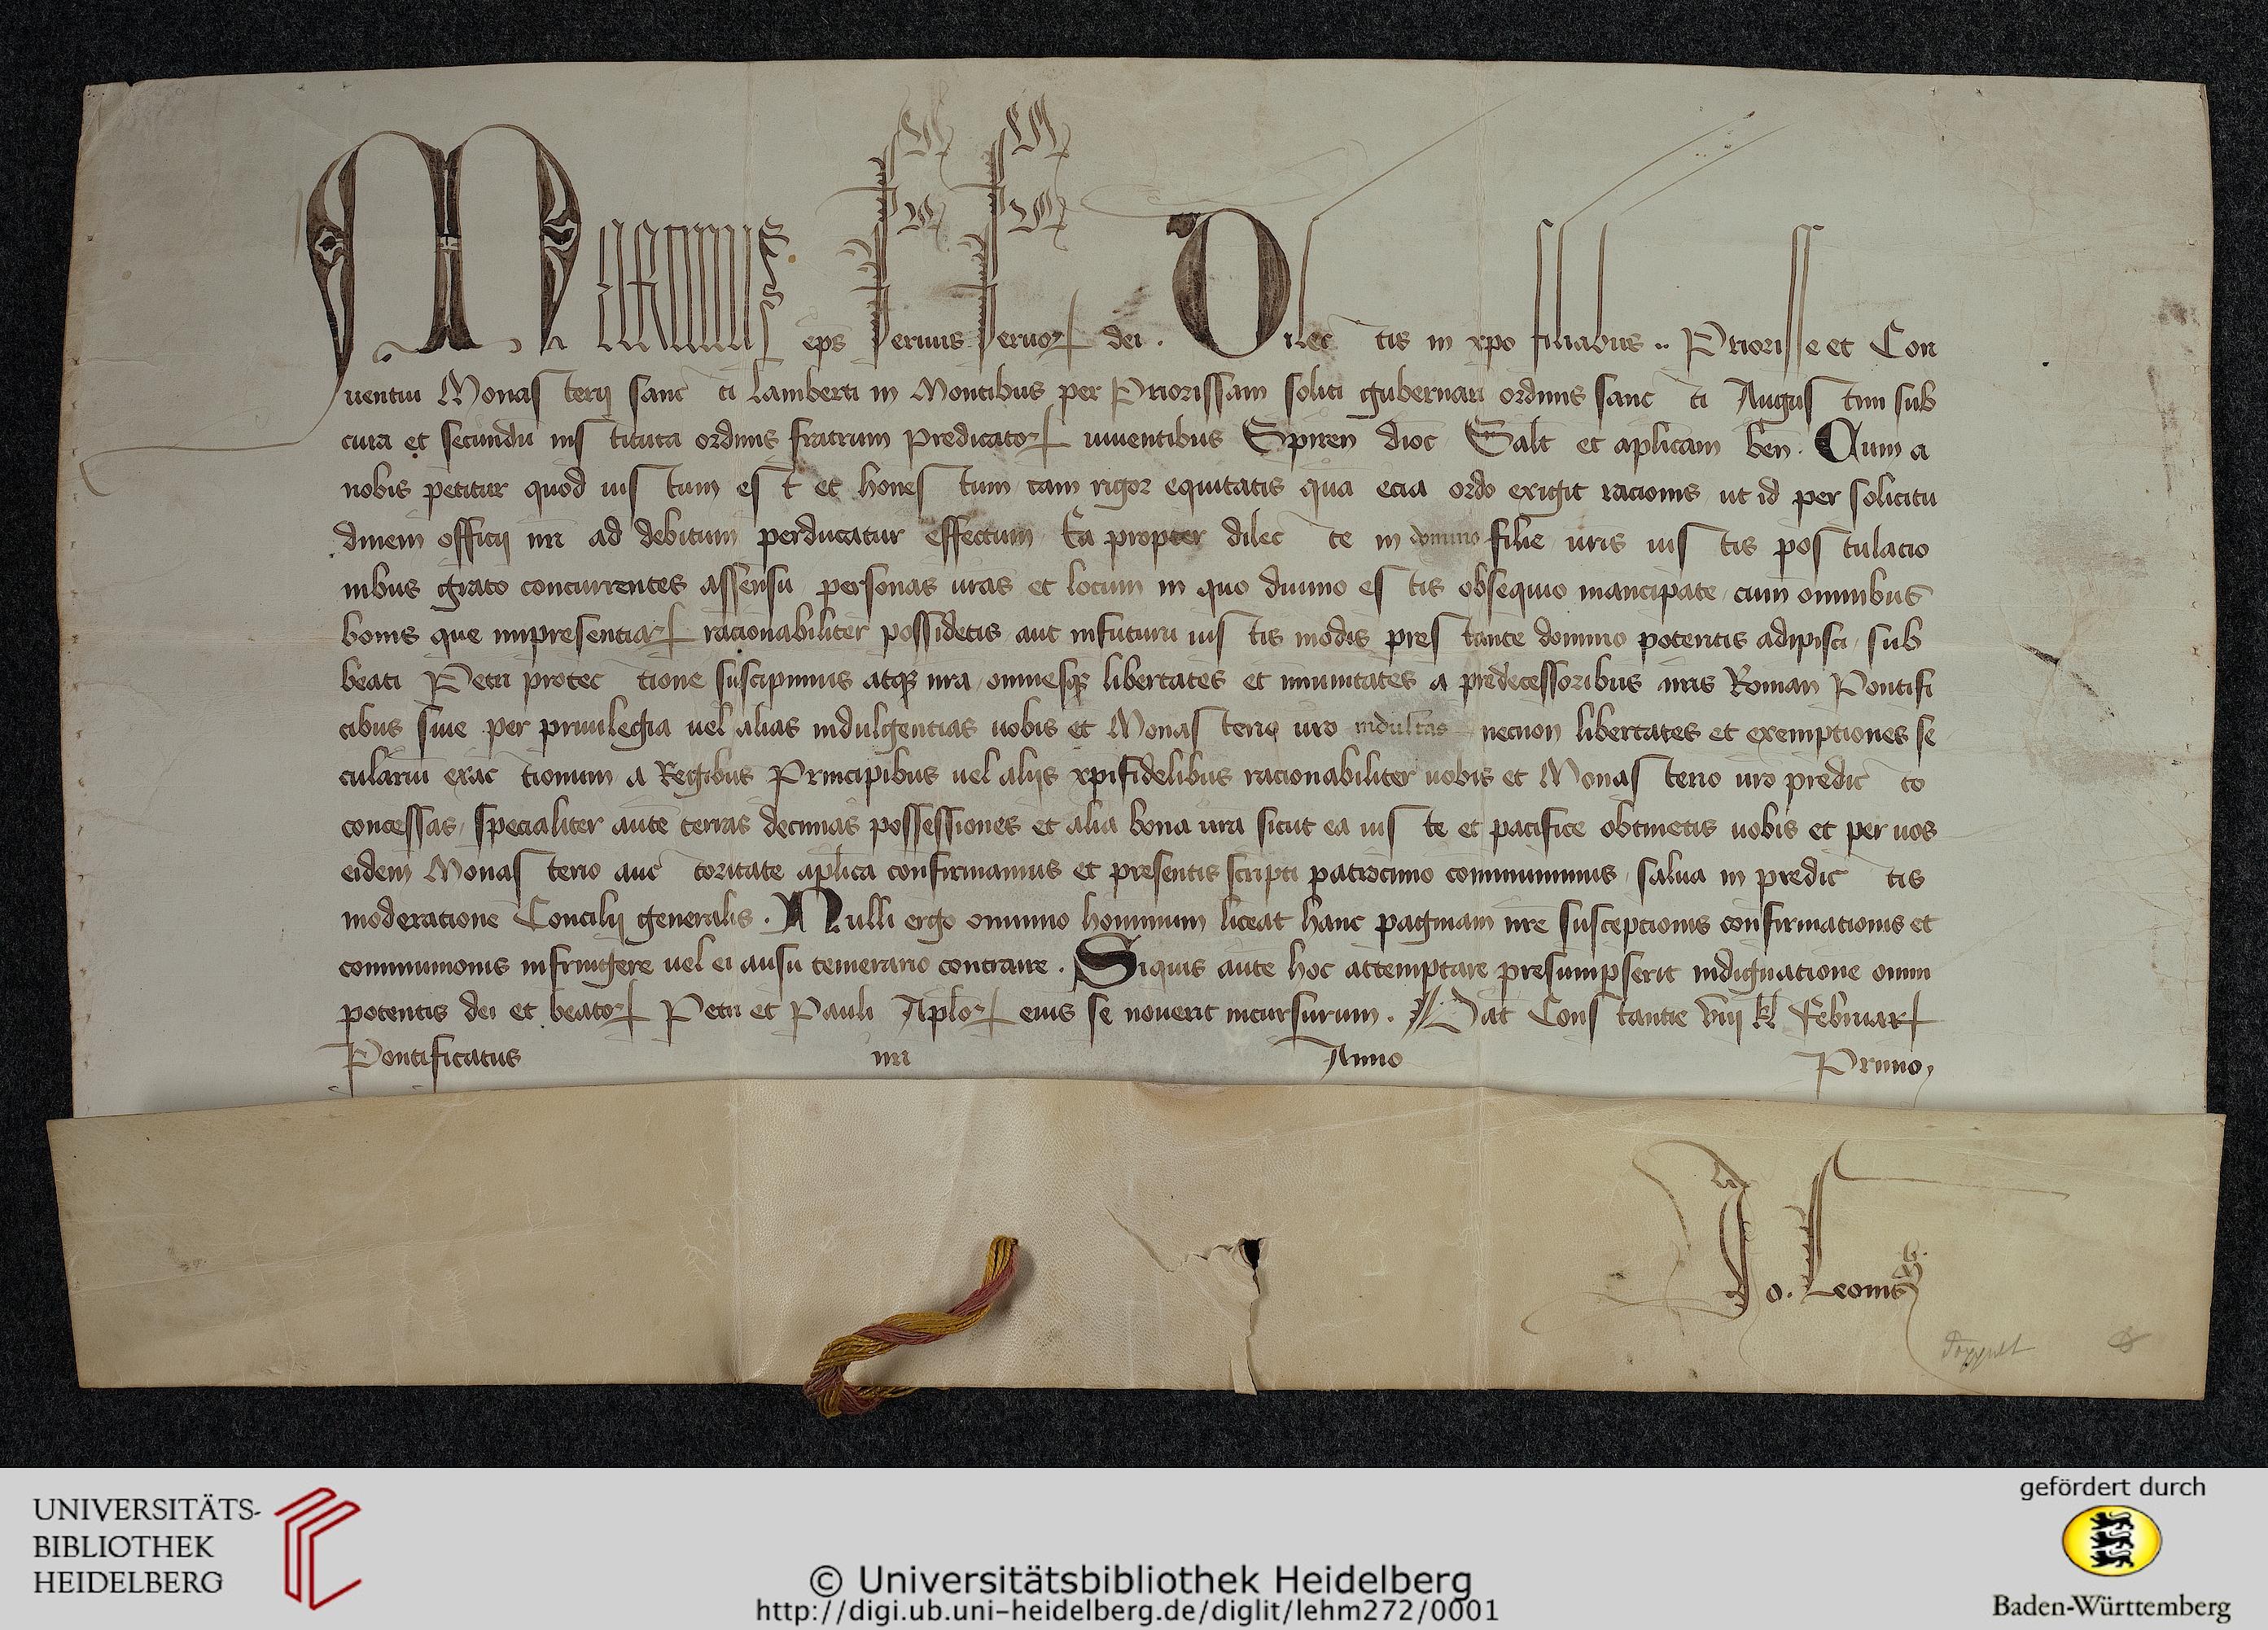 Martinus eps seruus seruor dei . Dilectis in xpo filiabus .. Priorisse et Con
uentui Monasterij sancti lamberti in Montibus per Priorissam soliti gubernari ordinis sancti Augustini sub
cura et secundu instituta ordinis fratrum predicator uiuentibus Spiren dioc Salt et aplicam ben . Cum a
nobis petitur quod iustum est et honestum tam rigor equitatis qua ecia ordo exigit racionis ut id per solicitu
dinem officij nri ad debitum perducatur effectum Ea propter dilecte in domino filie uris iustis postulacio
nibus grato concurrentes assensu personas uras et locum in quo diuino estis obsequio mancipate cum omnibus
bonis que inpresentiar racionabiliter possidetis aut infuturu iustis modis prestante domino poteritis adipisci sub
beati Petri protectione suscipimus atq nra omnesq libertates et inmunitates a predecessoribus nris Roman Pontifi
cibus siue per priuilegia uel alias indulgentias uobis et Monasterio uro indultas necnon libertates et exemptiones se
culariu exactionum a Regibus Principibus uel alijs xpifidelibus racionabiliter uobis et Monasterio uro predicto
concessas specialiter aute terras decimas possessiones et alia bona ura sicut ea iuste et pacifice obtinetis uobis et per uos
eidem Monasterio auctoritate aplica confirmamus et presentis scripti patrocinio communimus salua in predictis
moderatione Concilij generalis . Nulli ergo omnino hominum liceat hanc paginam nre susceptionis confirmationis et
communionis infringere uel ei ausu temerario contraire . Siquis aute hoc attemptare presumpserit indignatione omni
potentis dei et beator Petri et Pauli Aplor eius se nouerit incursurum . Dat Constantie viij kl Februar
Pontificatus nri Anno Primo
Jo. Leonis
UNIVERSITÄTS-
BIBLIOTHEK
HEIDELBERG
© Universitätsbibliothek Heidelberg
http://digi.ub.uni-heidelberg.de/diglit/lehm272/0001
gefördert durch
Baden-Württemberg